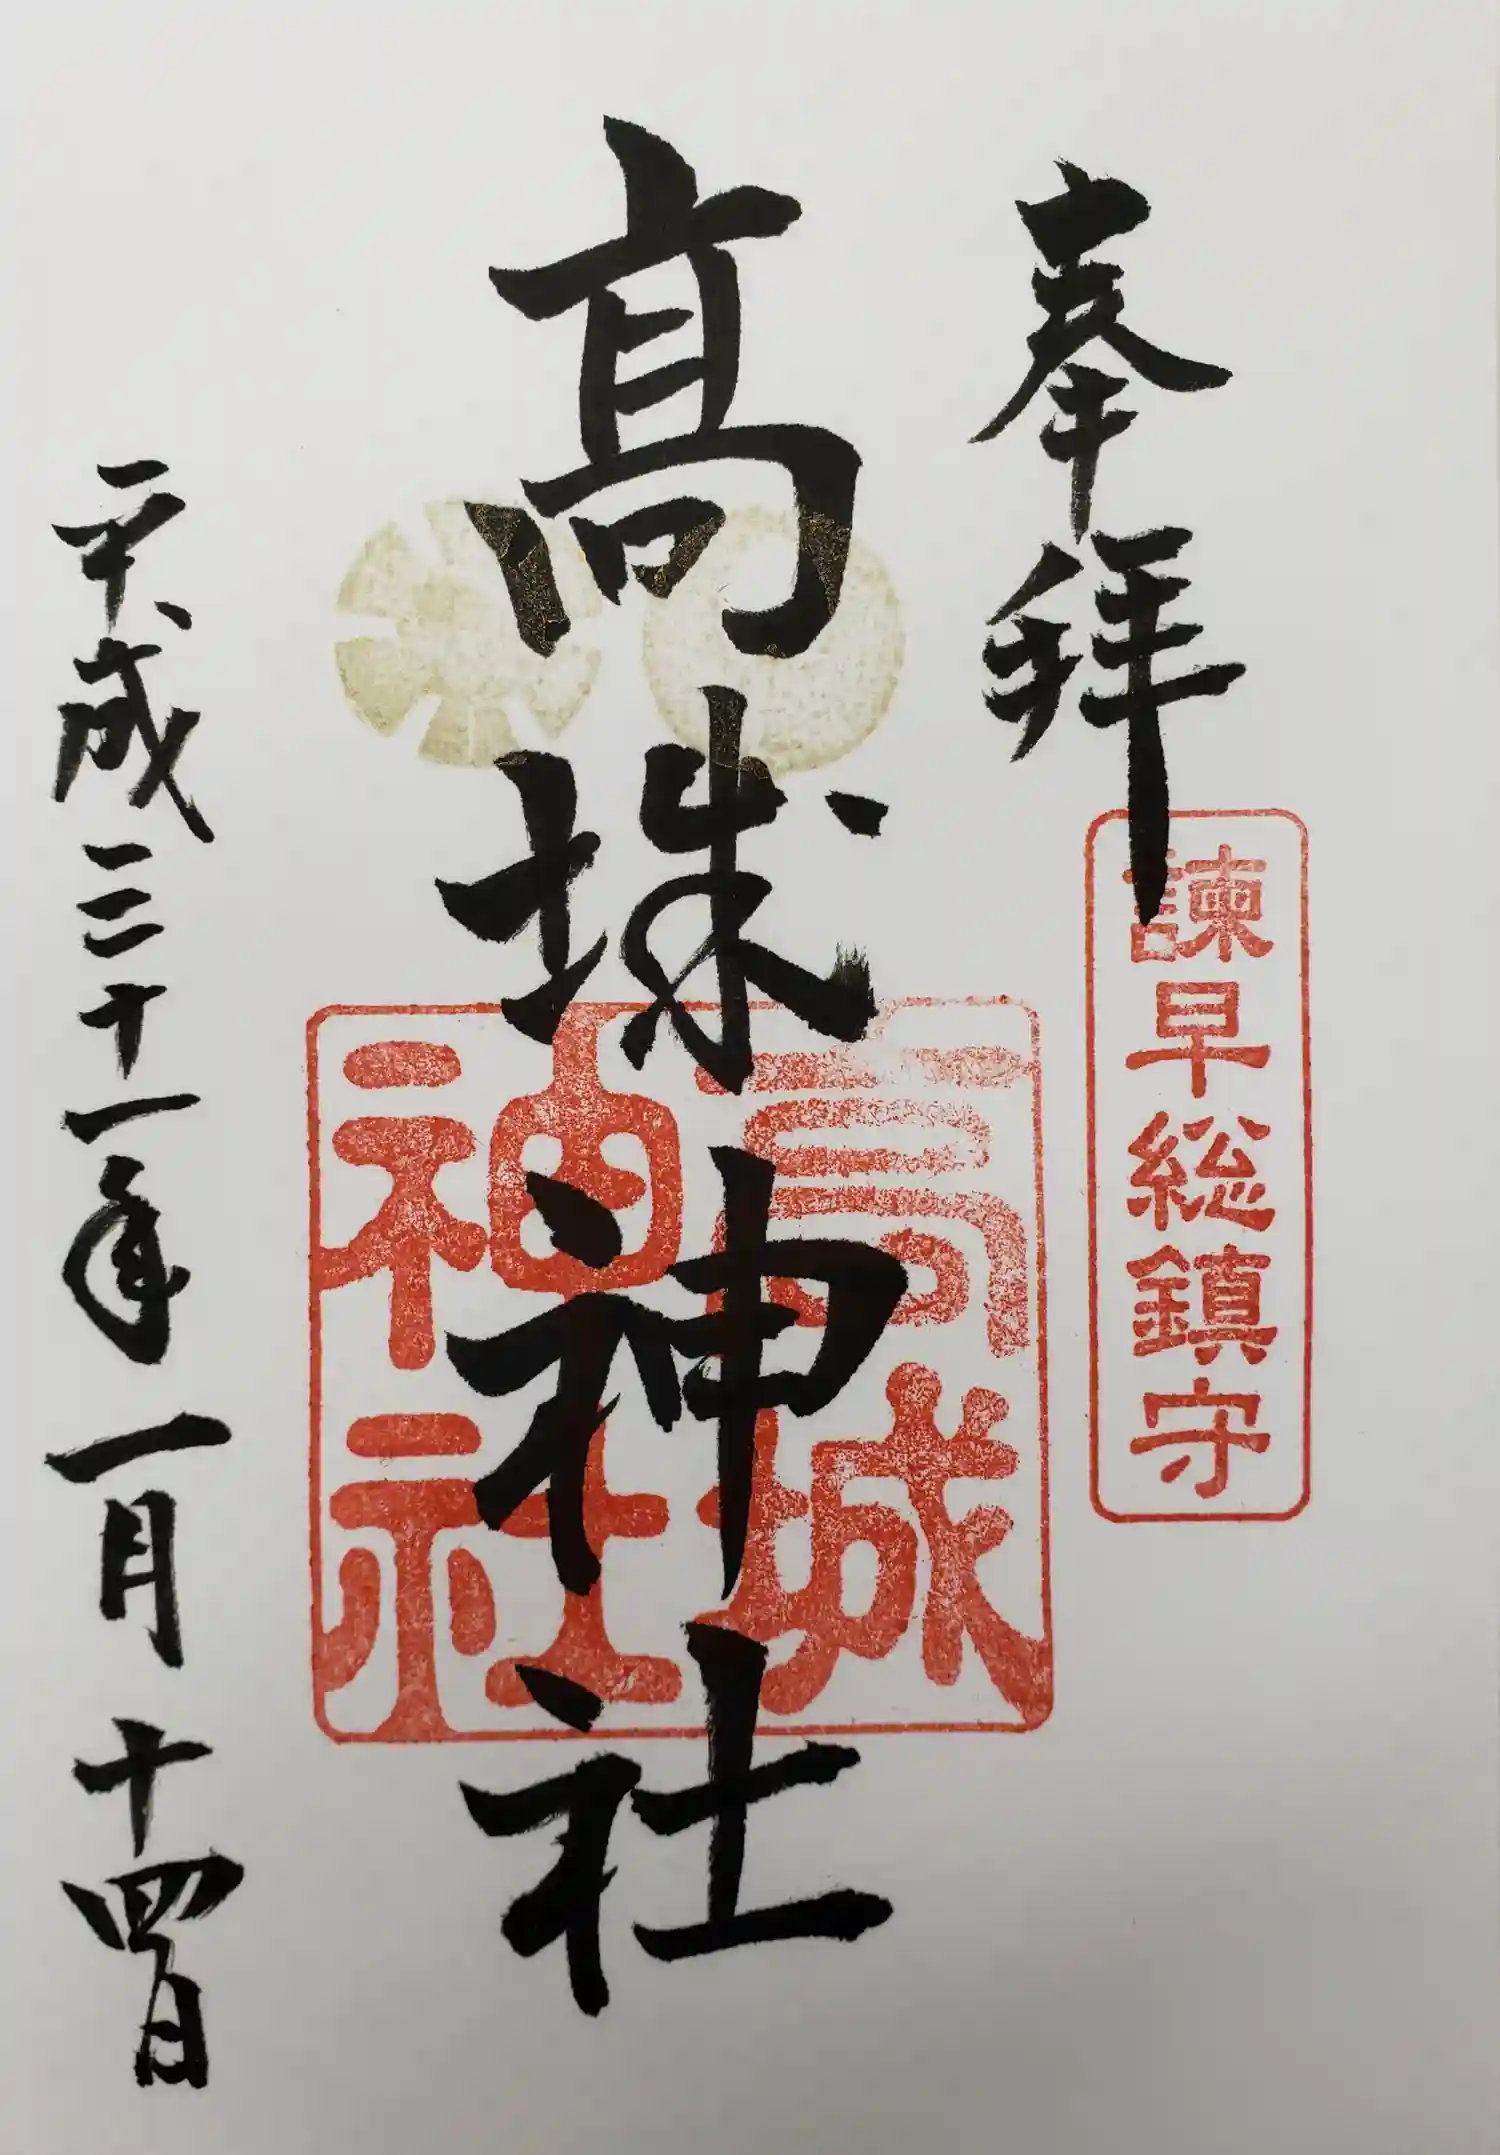 奉拝
諫早総鎮守
髙城神社
高城神社
平成三十一年一月十四日